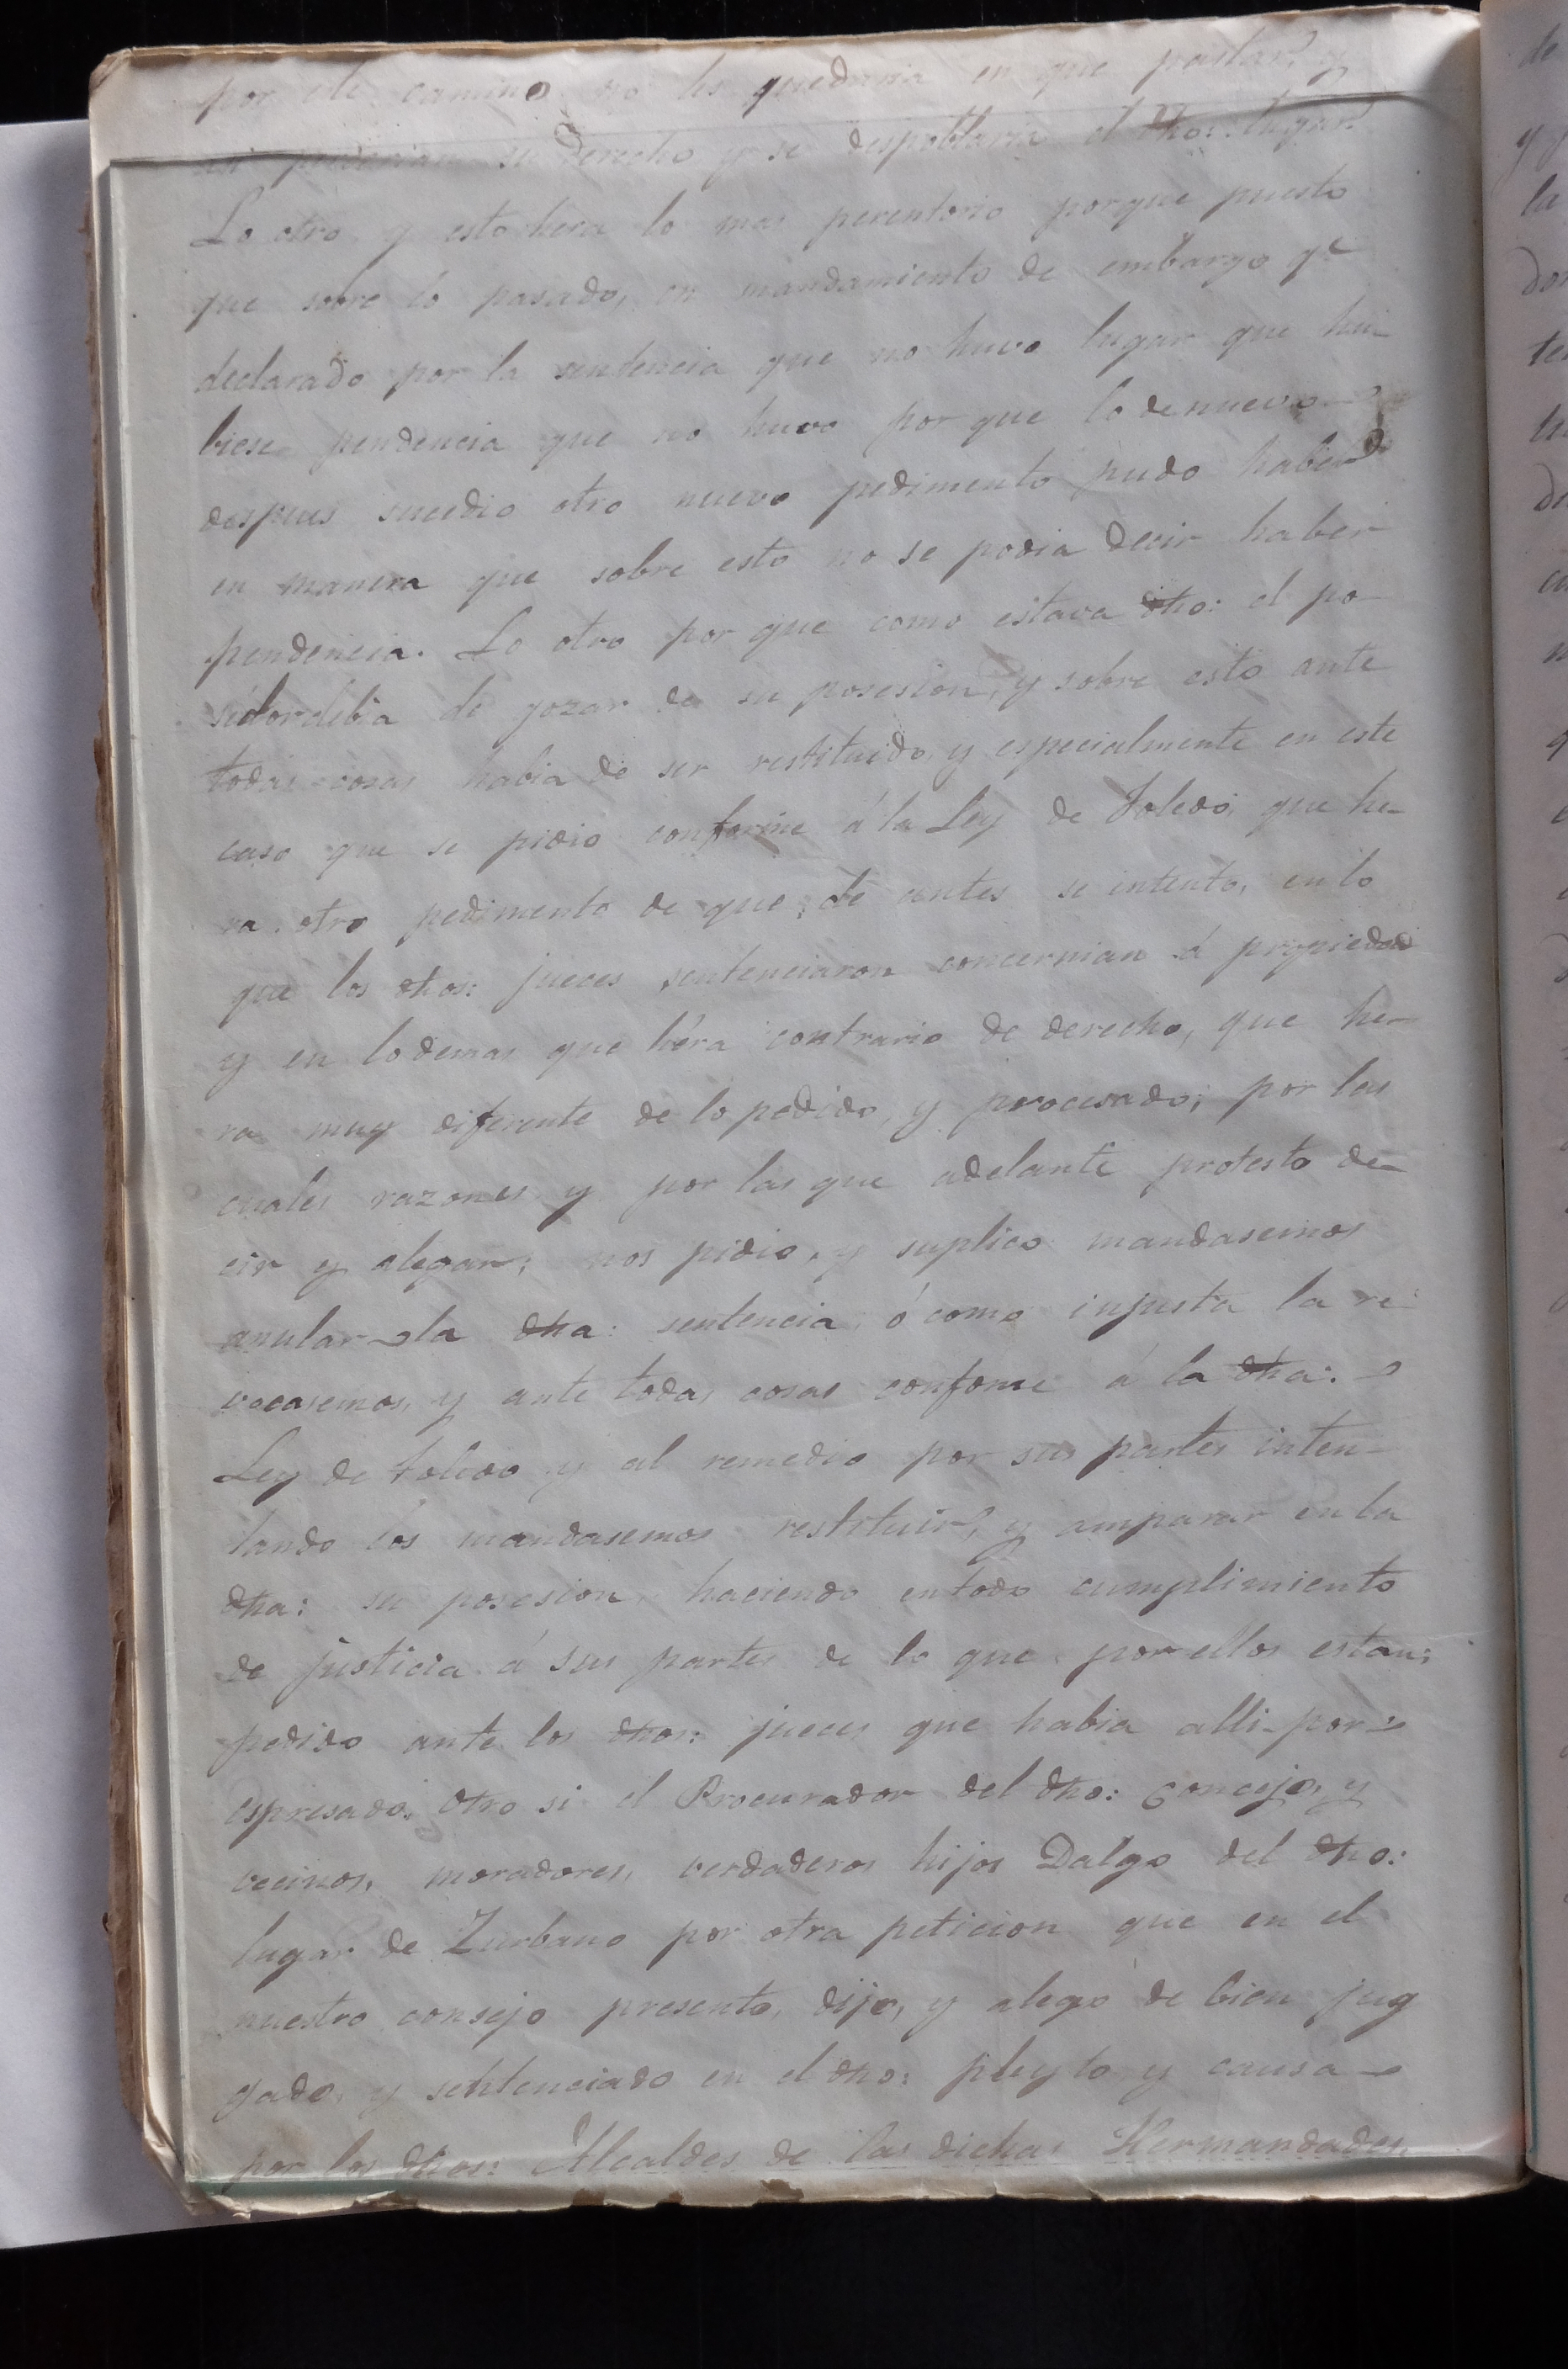 por ele camino no les quedaria en que pastar, y
asi perderian su derecho y se despoblaria el dho: lugar.
Lo otro y esto hera lo mas perentorio porque puesto
que sobre ló pasado, en mandamiento de embargo qe
declarado por la sentencia que no huvo lugar que hu-
biese pendencia que no huvo por que lo de nuevo
despues sucedio otro nuevo pedimento pudo haber
en manera que sobre esto no se podia decir haber
pendencia. Lo otro por que como estava dho: el po-
sedor debia de gozar de su posesion, y sobre esto ante
todas cosas habia de ser restituido, y especialmente en este
caso que se pidio conforme á la Ley de Toledo, que he-
ra otro pedimento de que de antes se intento, en lo
que los dhos: jueces sentenciaron concernian á propiedad
y en lo demas que héra contrario de derecho, que he-
ra muy diferente de lo pedido, y procesado; por las
cuales razones y por las que adelante protesto de-
cir y alegar; nos pidio, y suplico mandasemos
anular la dha: sentencia, ó como injusta la re-
vocasemos, y ante todas cosas conforme á la dha:
Ley de toledo y al remedio por sus partes inten-
tando lós mandasemos restituir, y amparar en la
dha: su posesion, haciendo en todo cumplimiento
de justicia á sus partes de lo que por ellos estan:
pedido ante los dhos: jueces que habia alli por
espresado. Otro si el Procurador del dho: concejo, y
vecinos, moradores, verdaderos hijos Dalgo del dho:
lugar de Zurbano por otra peticion que en el
nuestro consejo presento, dijo, y alegó de bien juz
gado, y sentenciado en el dho: pleyto, y causa
por los dhos: Alcaldes de las dichas Hermandades,